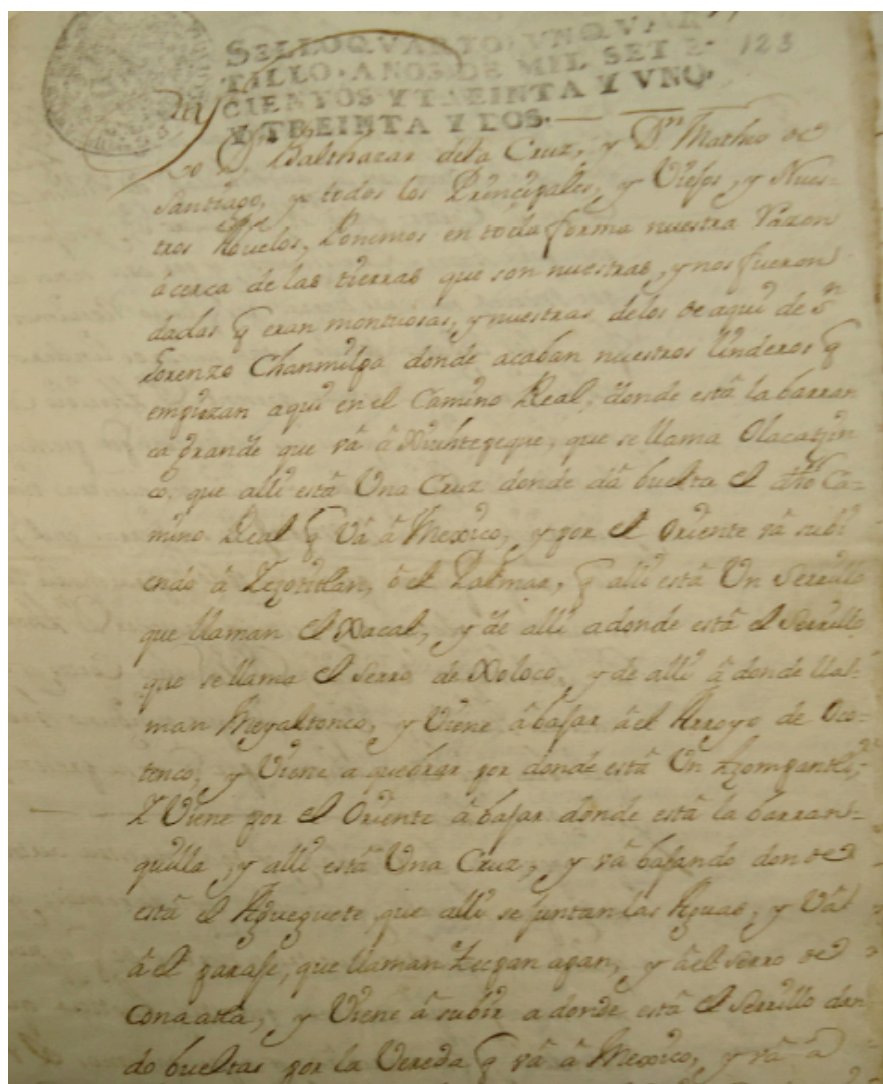 SELLO QVARTO, VN QVAR
TILLO, AÑOS DE MIL SETE-
CIENTOS Y TREINTA Y VNO,
Y TREINTA Y DOS.
123
Yo Dn Balthazar de la Cruz, y Dn Matheo de
Santiago, y todos los Principales, y Viejos, y Nues-
tros Abuelos, Ponemos en toda forma nuestra Razon
â cerca de las tierras que son nuestras, y nos fueron
dadas q eran montuosas, y nuestras delos de aqui de Sn
Lorenzo Chanmilpa donde acaban nuestros linderos q
empiezan aqui en el Camino Real, donde està la barran
ca grande que và â Xiuhtepeque, que se llama Olacatzin
co, que alli està Una Cruz donde dà buelta el dho Ca-
mino Real q Và â Mexico, y por el Oriente và subi
endo â Tezontitlan, ò el Palmar, q alli està Un Serrillo
que llaman el Xacal, y de alli adonde està el Serrillo
que se llama el Serro de Xoloco, y de alli â donde lla-
man Meyaltonco, y Viene âbajar âel Arroyo de Oco-
tenco, y Viene a quebrar por donde està Un tzompantli;
Y Viene por el Oriente âbajar donde està la barran-
quilla, y alli està Una Cruz, y và bajando donde
està el Agueguete, que alli se juntan las Aguas, y Và
â el paraje, que llaman Tecpan apan, y âel Serro de
Conaatla, y Viene â subir adonde està el Serrillo dan
do bueltas por la Vereda q và â Mexico, y và â